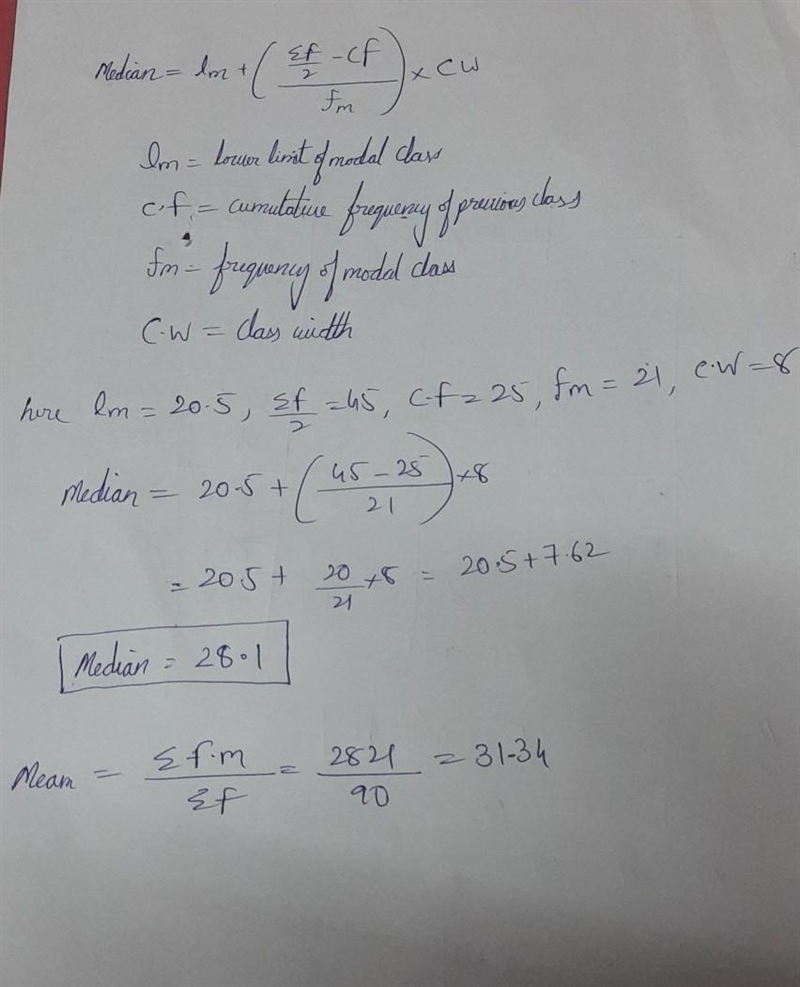 Median = lm + ( (Σf/2 - Cf) / fm ) × CW
lm = lower limit of modal class
C.f. = cumulative frequency of previous class
fm = frequency of modal class
C.W = class width
here lm = 20.5, Σf/2 = 45, C.f = 25, fm = 21, C.W = 8
Median = 20.5 + ( (45 - 25) / 21 ) × 8
= 20.5 + 20/21 × 8 = 20.5 + 7.62
Median = 28.1
Mean = Σf.m / Σf = 2821 / 90 = 31.34